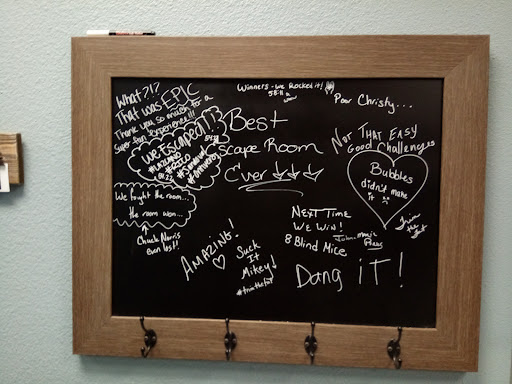 What?!?
That was EPIC
Thank you so much for a
super fun experience!!!
Winners - we Rocked it!
58:11 a
wow
Poor Christy...
We Escaped!!
Best
Escape Room
Ever ↓↓↓
Not THAT EASY
Good challenges
Bubbles
didn't make
it
We fought the room...
the room won...
↑
Chuck Norris
even lost!!
AMAZING!
♡
Suck
It
Mikey!
#trimthefat
NEXT TIME
WE WIN!
8 Blind Mice
Dang iT!
Trim
the
fat